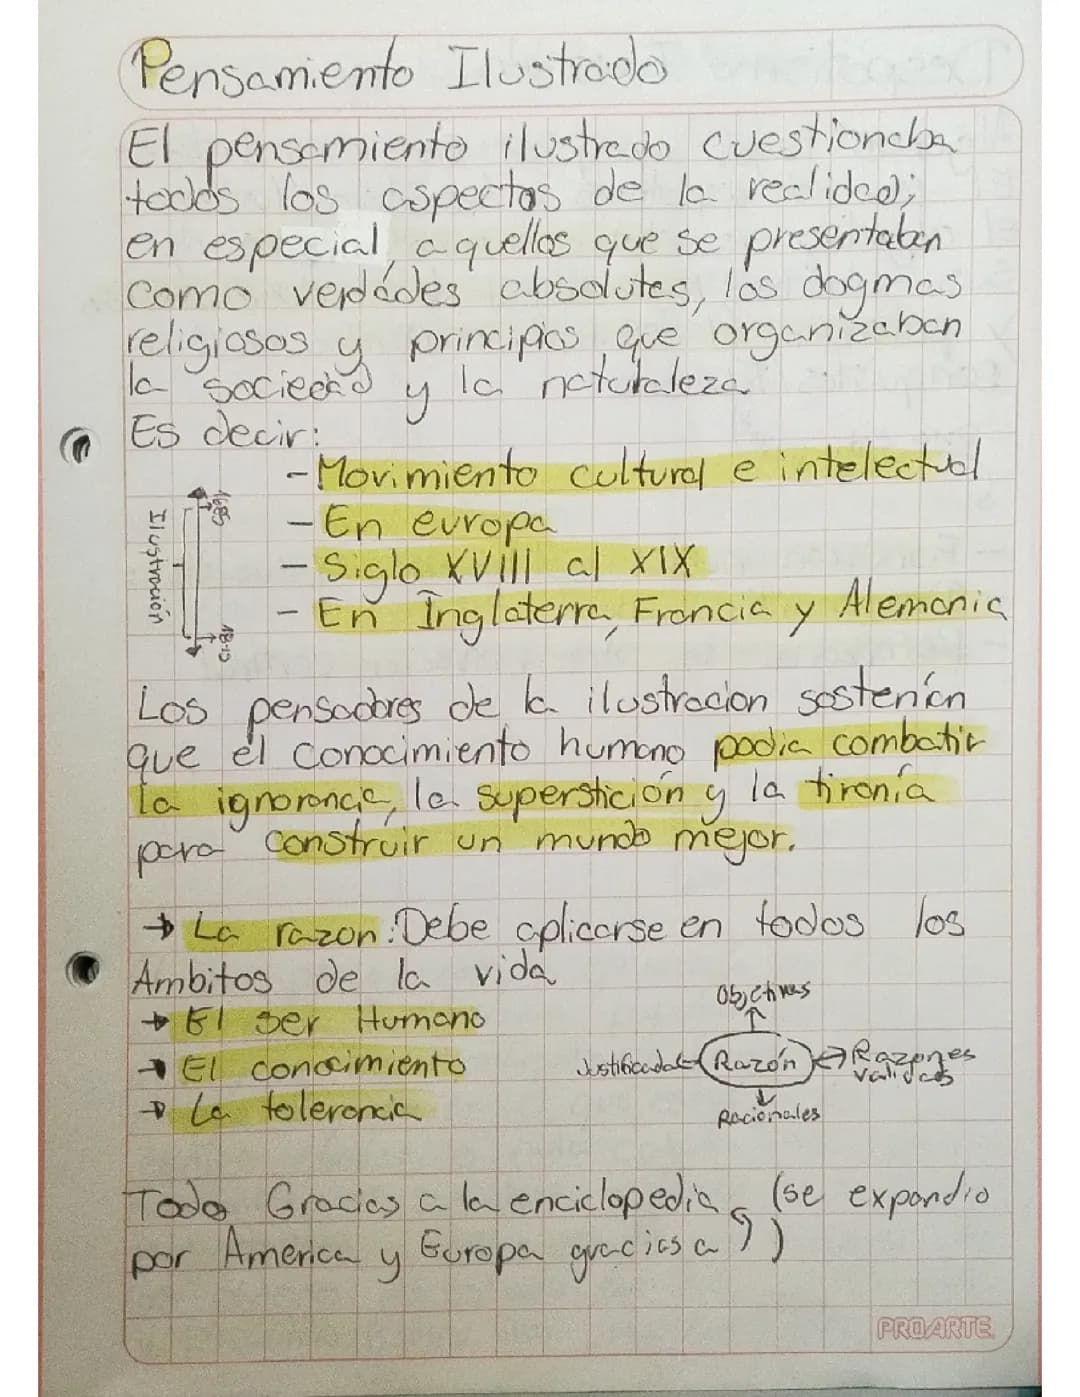 Pensamiento Ilustrado
El pensamiento ilustrado cuestionaba
todos los aspectos de la realidad;
en especial, aquellos que se presentaban
como verdades absolutas, los dogmas
religiosos y principios que organizaban
la sociedad y la naturaleza
Es decir:
-Movimiento cultural e intelectual
-En europa
-Siglo XVIII al XIX
-En Inglaterra, Francia y Alemania
1685
Ilustración
1810
Los pensadores de la ilustracion sostenían
que el conocimiento humano podia combatir
la ignorancia, la superstición y la tiranía
para construir un mundo mejor.
→ La razon: Debe aplicarse en todos los
Ambitos de la vida
→ El ser Humano
→ El conocimiento
→ La tolerancia
Objetivas
Justificada ← Razón → Razones
validas
Racionales
Todo Gracias a la enciclopedia (se expandio
por America y Europa gracias a )
PROARTE